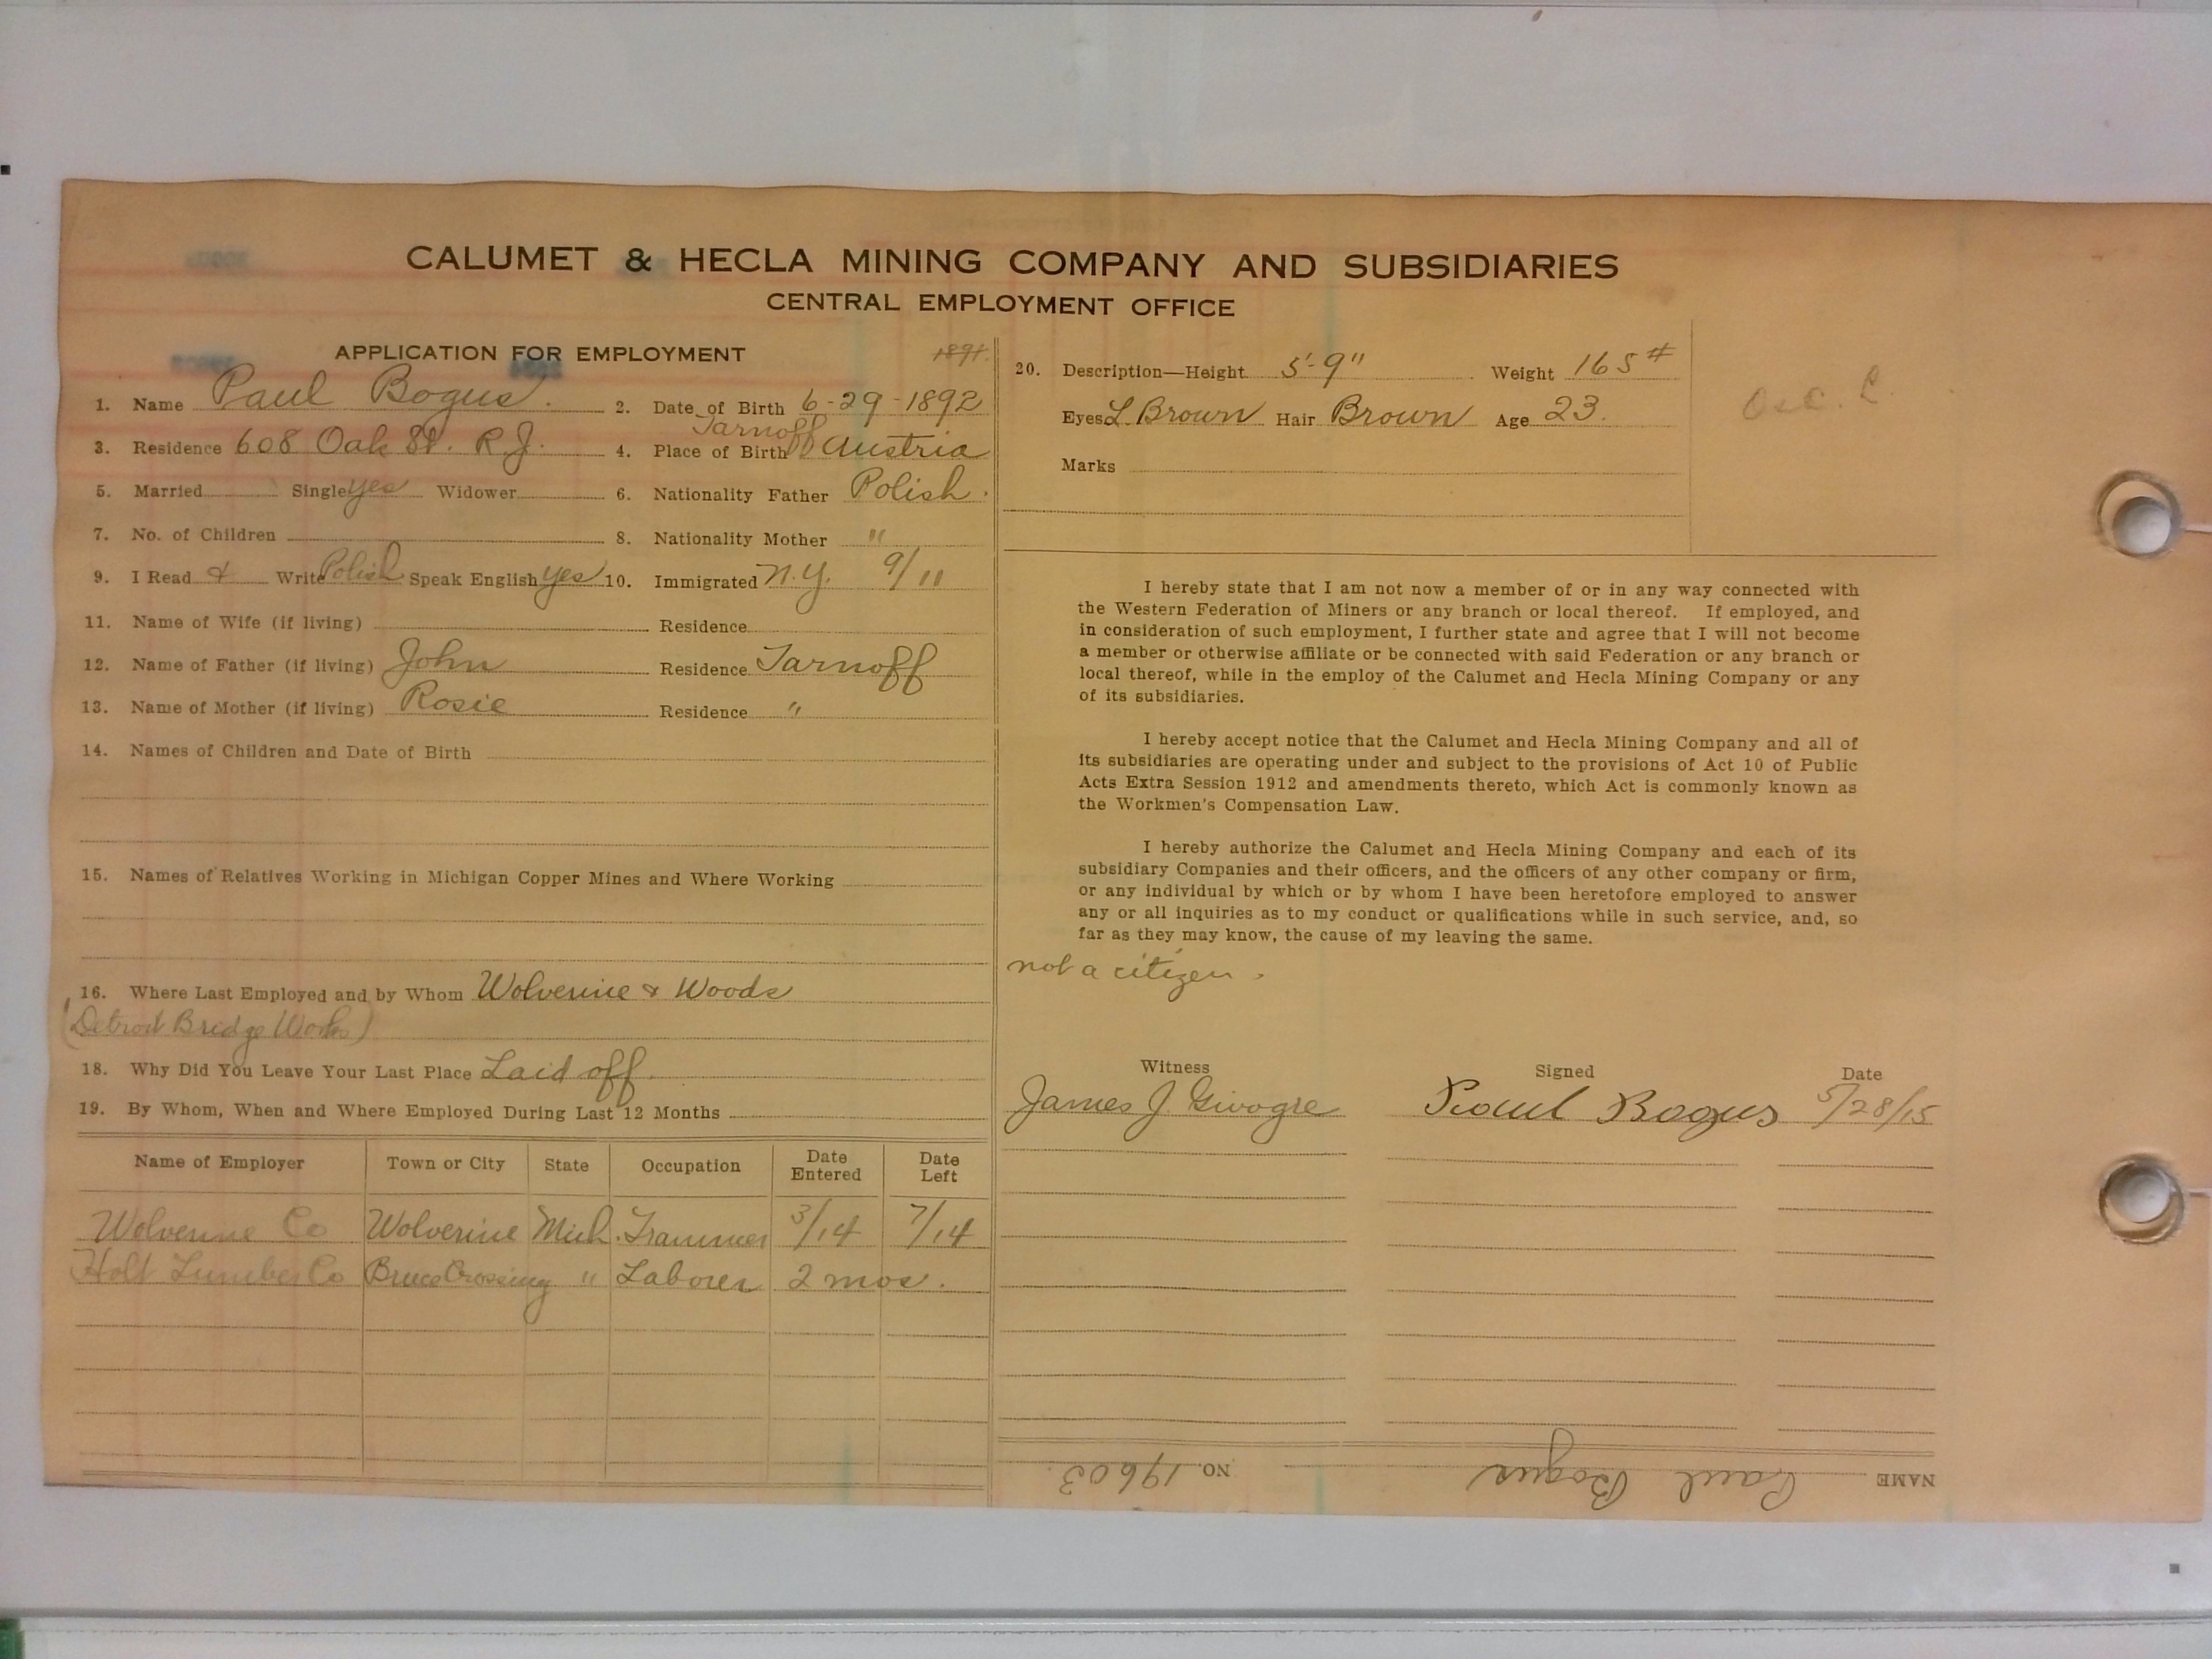 CALUMET & HECLA MINING COMPANY AND SUBSIDIARIES
CENTRAL EMPLOYMENT OFFICE
APPLICATION FOR EMPLOYMENT
1891.
1. Name Paul Bogus. 2. Date of Birth 6-29-1892
3. Residence 608 Oak St. R.J. 4. Place of Birth Tarnoff Austria
5. Married Single yes Widower 6. Nationality Father Polish.
7. No. of Children 8. Nationality Mother "
9. I Read & Write Polish Speak English yes 10. Immigrated N.Y. 9/11
11. Name of Wife (if living) Residence
12. Name of Father (if living) John Residence Tarnoff
13. Name of Mother (if living) Rosie Residence "
14. Names of Children and Date of Birth
15. Names of Relatives Working in Michigan Copper Mines and Where Working
16. Where Last Employed and by Whom Wolverine & Woods
(Detroit Bridge Works)
18. Why Did You Leave Your Last Place Laid off.
19. By Whom, When and Where Employed During Last 12 Months
Name of Employer Town or City State Occupation Date Entered Date Left
Wolverine Co Wolverine Mich. Trammer 3/14 7/14
Holt Lumber Co Bruce Crossing " Laborer 2 mos.
20. Description—Height 5'-9" Weight 165#
Eyes L. Brown Hair Brown Age 23.
Marks
Osc. L.
I hereby state that I am not now a member of or in any way connected with
the Western Federation of Miners or any branch or local thereof. If employed, and
in consideration of such employment, I further state and agree that I will not become
a member or otherwise affiliate or be connected with said Federation or any branch or
local thereof, while in the employ of the Calumet and Hecla Mining Company or any
of its subsidiaries.
I hereby accept notice that the Calumet and Hecla Mining Company and all of
its subsidiaries are operating under and subject to the provisions of Act 10 of Public
Acts Extra Session 1912 and amendments thereto, which Act is commonly known as
the Workmen's Compensation Law.
I hereby authorize the Calumet and Hecla Mining Company and each of its
subsidiary Companies and their officers, and the officers of any other company or firm,
or any individual by which or by whom I have been heretofore employed to answer
any or all inquiries as to my conduct or qualifications while in such service, and, so
far as they may know, the cause of my leaving the same.
not a citizen.
Witness Signed Date
James J. Paul Bogus 5/28/15
NAME Paul Bogus NO. 19603